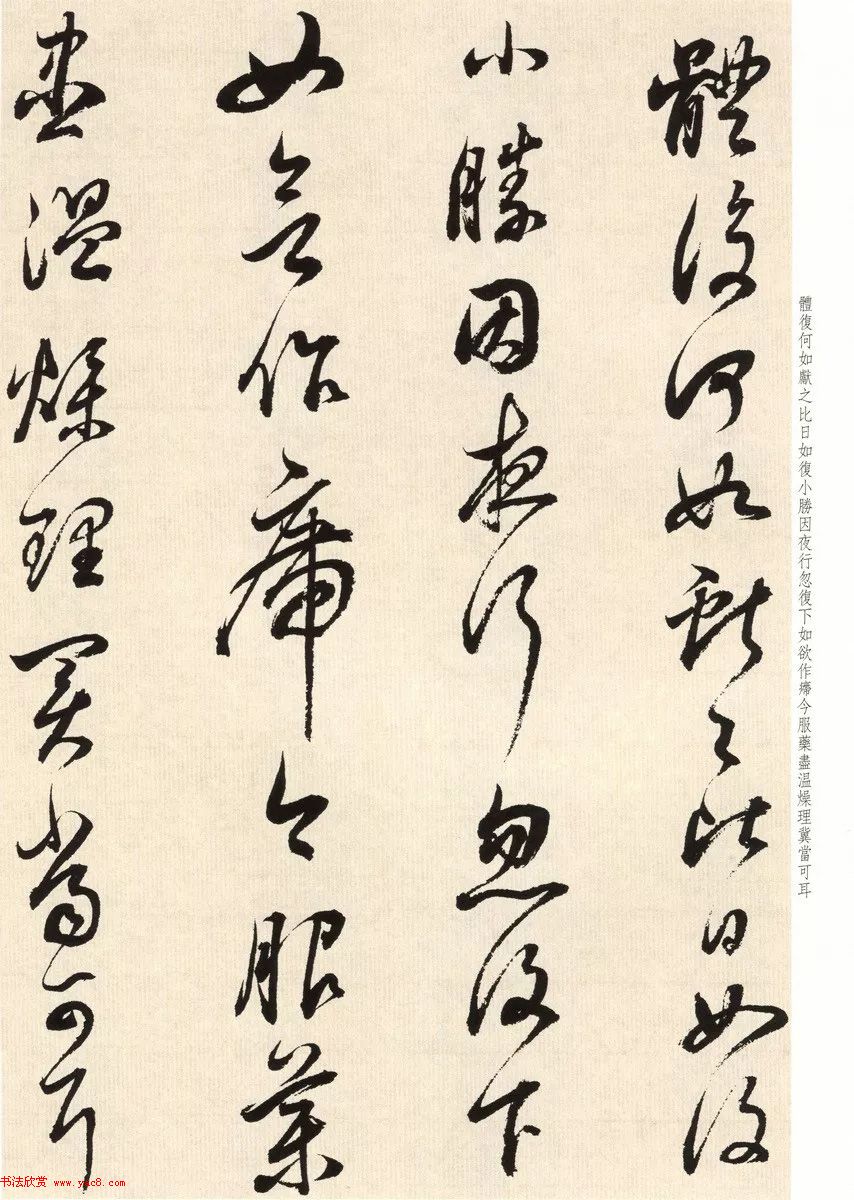 體復何如獻之比日如復
小勝因夜行忽復下
如欲作㿃今服藥
盡温燥理冀當可耳
體復何如獻之比日如復小勝因夜行忽復下如欲作㿃今服藥盡温燥理冀當可耳
书法欣赏 www.yac8.com